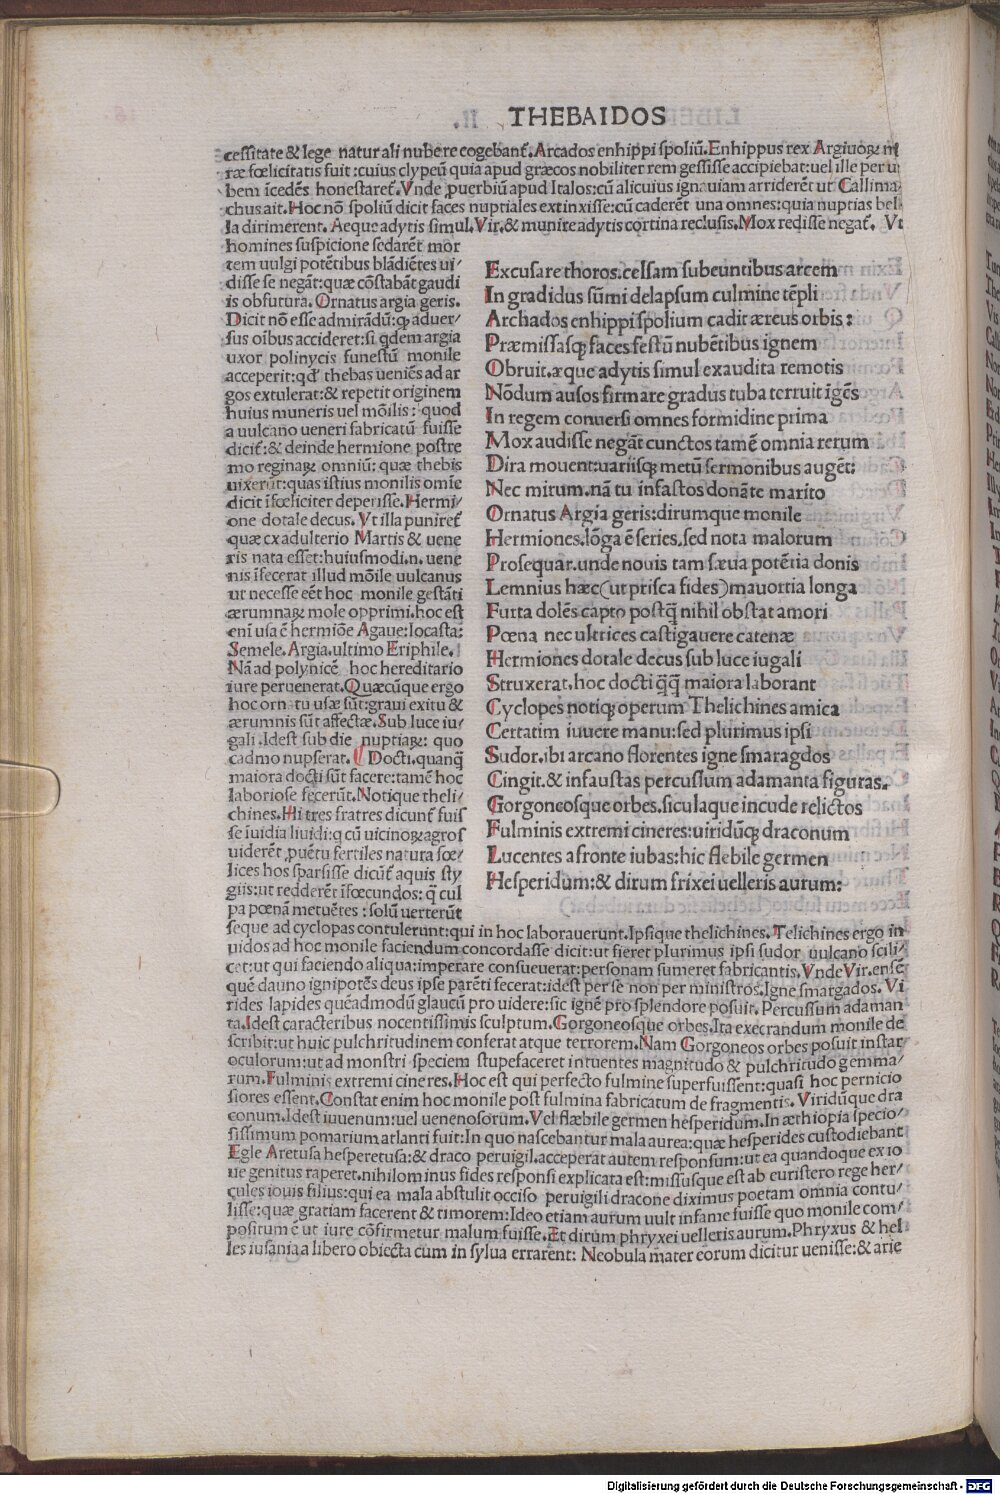 THEBAIDOS
cessitate & lege naturali nubere cogebant̃. Arcados enhippi spoliũ. Enhippus rex Argiuoꝝ mi
ræ fœlicitatis fuit : cuius clypeũ quia apud græcos nobiliter rem gessisse accipiebat: uel ille per u
bem ĩcedẽs honestaret̃. Vnde ꝓuerbiũ apud Italos: cũ alicuius ignauiam arriderẽt ut Callima/
chus ait. Hoc nõ spoliũ dicit faces nuptiales extinxisse: cũ caderẽt una omnes: quia nuptias bel
la dirimerent. Aeque adytis simul. Vir. & munire adytis cortina reclusis. Mox redisse negat̃. Vt
homines suspicione sedarẽt mor
tem uulgi potẽtibus blãdiẽtes ui/
disse se negãt: quæ cõstabãt gaudi
is obsutura. Ornatus argia geris.
Dicit nõ esse admirãdũ: ꝙ aduer/
sus oibus accideret: si qdem argia
uxor polinycis funestũ monile
acceperit: qd' thebas ueniẽs ad ar
gos extulerat: & repetit originem
huius muneris uel mõilis: quod
a uulcano ueneri fabricatũ fuisse
dicit̃: & deinde hermione postre
mo reginaꝝ omniũ: quæ thebis
uixerũt: quas istius monilis omĩe
dicit ĩfœliciter deperisse. Hermi/
one dotale decus. Vt illa puniret̃
quæ ex adulterio Martis & uene
ris nata esset: huiusmodi .n. uene
nis ĩfecerat illud mõile uulcanus
ut necesse eẽt hoc monile gestãti
ærumnaꝝ mole opprimi. hoc est
eni usa ẽ hermiõe Agaue: Iocasta:
Semele. Argia. ultimo Eriphile.
Nã ad polynicẽ hoc hereditario
iure peruenerat. Quæcũque ergo
hoc ornatu usæ sũt: graui exitu &
ærumnis sũt affectæ. Sub luce iu/
gali. Idest sub die nuptiaꝝ: quo
cadmo nupserat. Docti. quanq̃
maiora docti sũt facere: tamẽ hoc
laboriose fecerũt. Notique theli/
chines. Hi tres fratres dicunt̃ fuis
se ĩuidia liuidi: q cũ uicinoꝝ agros
uiderẽt ꝓuẽtu fertiles natura fœ/
lices hos sparsisse dicũt̃ aquis sty
giis: ut redderẽt ĩfœcundos: q̃ cul
pa pœnã metuẽtes : solũ uerterũt
Excusare thoros. celsam subeuntibus arcem
In gradidus sũmi delapsum culmine tẽpli
Archados enhippi spolium cadit æreus orbis:
Præmissasqꝫ faces festũ nubẽtibus ignem
Obruit. æque adytis simul exaudita remotis
Nõdum ausos firmare gradus tuba terruit ĩgẽs
In regem conuersi omnes formidine prima
Mox audisse negãt cunctos tamẽ omnia rerum
Dira mouent: uariisqꝫ metũ sermonibus augẽt:
Nec mirum. nã tu infastos donãte marito
Ornatus Argia geris: dirumque monile
Hermiones. lõga ẽ series. sed nota malorum
Prosequar. unde nouis tam sæua potẽtia donis
Lemnius hæc (ut prisca fides) mauortia longa
Furta dolẽs capto postq̃ nihil obstat amori
Pœna nec ultrices castigauere catenæ
Hermiones dotale decus sub luce iugali
Struxerat. hoc docti q̃q̃ maiora laborant
Cyclopes notiqꝫ operum Thelichines amica
Certatim iuuere manu: sed plurimus ipsi
Sudor. ibi arcano florentes igne smaragdos
Cingit. & infaustas percussum adamanta figuras.
Gorgoneosque orbes. siculaque incude relictos
Fulminis extremi cineres: uiridũqꝫ draconum
Lucentes a fronte iubas: hic flebile germen
Hesperidum: & dirum frixei uelleris aurum:
seque ad cyclopas contulerunt: qui in hoc laborauerunt. Ipsique thelichines. Telichines ergo in
uidos ad hoc monile faciendum concordasse dicit: ut fieret plurimus ipsi sudor uulcano scili/
cet: ut qui faciendo aliqua: imperare consueuerat: personam sumeret fabricantis. Vnde Vir. ensẽ
quẽ dauno ignipotẽs deus ipse parẽti fecerat: idest per se non per ministros. Igne smargados. Vi
rides lapides quẽadmodũ glaucũ pro uidere: sic ignẽ pro splendore posuit. Percussum adaman
ta. Idest caracteribus nocentissimis sculptum. Gorgoneosque orbes. Ita execrandum monile de
scribit: ut huic pulchritudinem conferat atque terrorem. Nam Gorgoneos orbes posuit instar
oculorum: ut ad monstri speciem stupefaceret intuentes magnitudo & pulchritudo gemma/
rum. Fulminis extremi cineres. Hoc est qui perfecto fulmine superfuissent: quasi hoc pernicio
siores essent. Constat enim hoc monile post fulmina fabricatum de fragmentis. Viridũque dra
conum. Idest iuuenum: uel uenenosorum. Vel flæbile germen hesperidum. In æthiopia specio/
sissimum pomarium atlanti fuit: In quo nascebantur mala aurea: quæ hesperides custodiebant
Egle Aretusa hesperetusa: & draco peruigil. acceperat autem responsum: ut ea quandoque ex io
ue genitus raperet. nihilominus fides responsi explicata est: missusque est ab euristero rege her/
cules iouis filius: qui ea mala abstulit occiso peruigili dracone diximus poetam omnia contu/
lisse: quæ gratiam facerent & timorem: Ideo etiam aurum uult infame fuisse quo monile com/
positum ẽ ut iure cõfirmetur malum fuisse. Et dirũm phryxei uelleris aurum. Phryxus & hel
les iusania a libero obiecta cum in sylua errarent: Neobula mater eorum dicitur uenisse: & arie
Digitalisierung gefördert durch die Deutsche Forschungsgemeinschaft - DFG